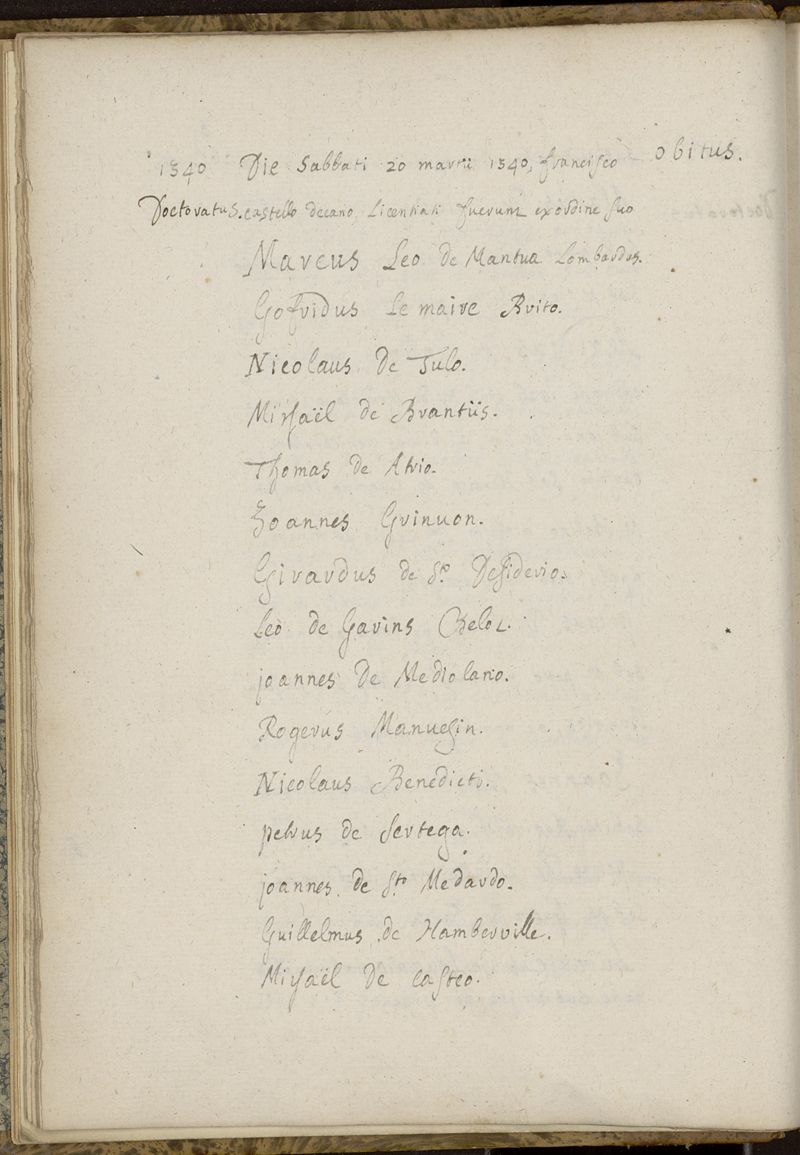 1540 Die Sabbati 20 martii 1540, francisco obitus.
Doctoratus. castello decano, Licentiati fuerunt ex ordine suo
Marcus Leo de Mantua Lombardus.
Gofridus Le maire Brito.
Nicolaus de Tulo.
Michaël de Brantiis.
Thomas de Atrio.
Joannes Grinuon.
Girardus de Sto. Desiderio.
Leo de Gavins Belot.
joannes De Mediolano.
Rogerus Manuesin.
Nicolaus Benedicti.
petrus de Sertega.
joannes de Sto Medardo.
Guillelmus de Hamberville.
Michaël De castro.